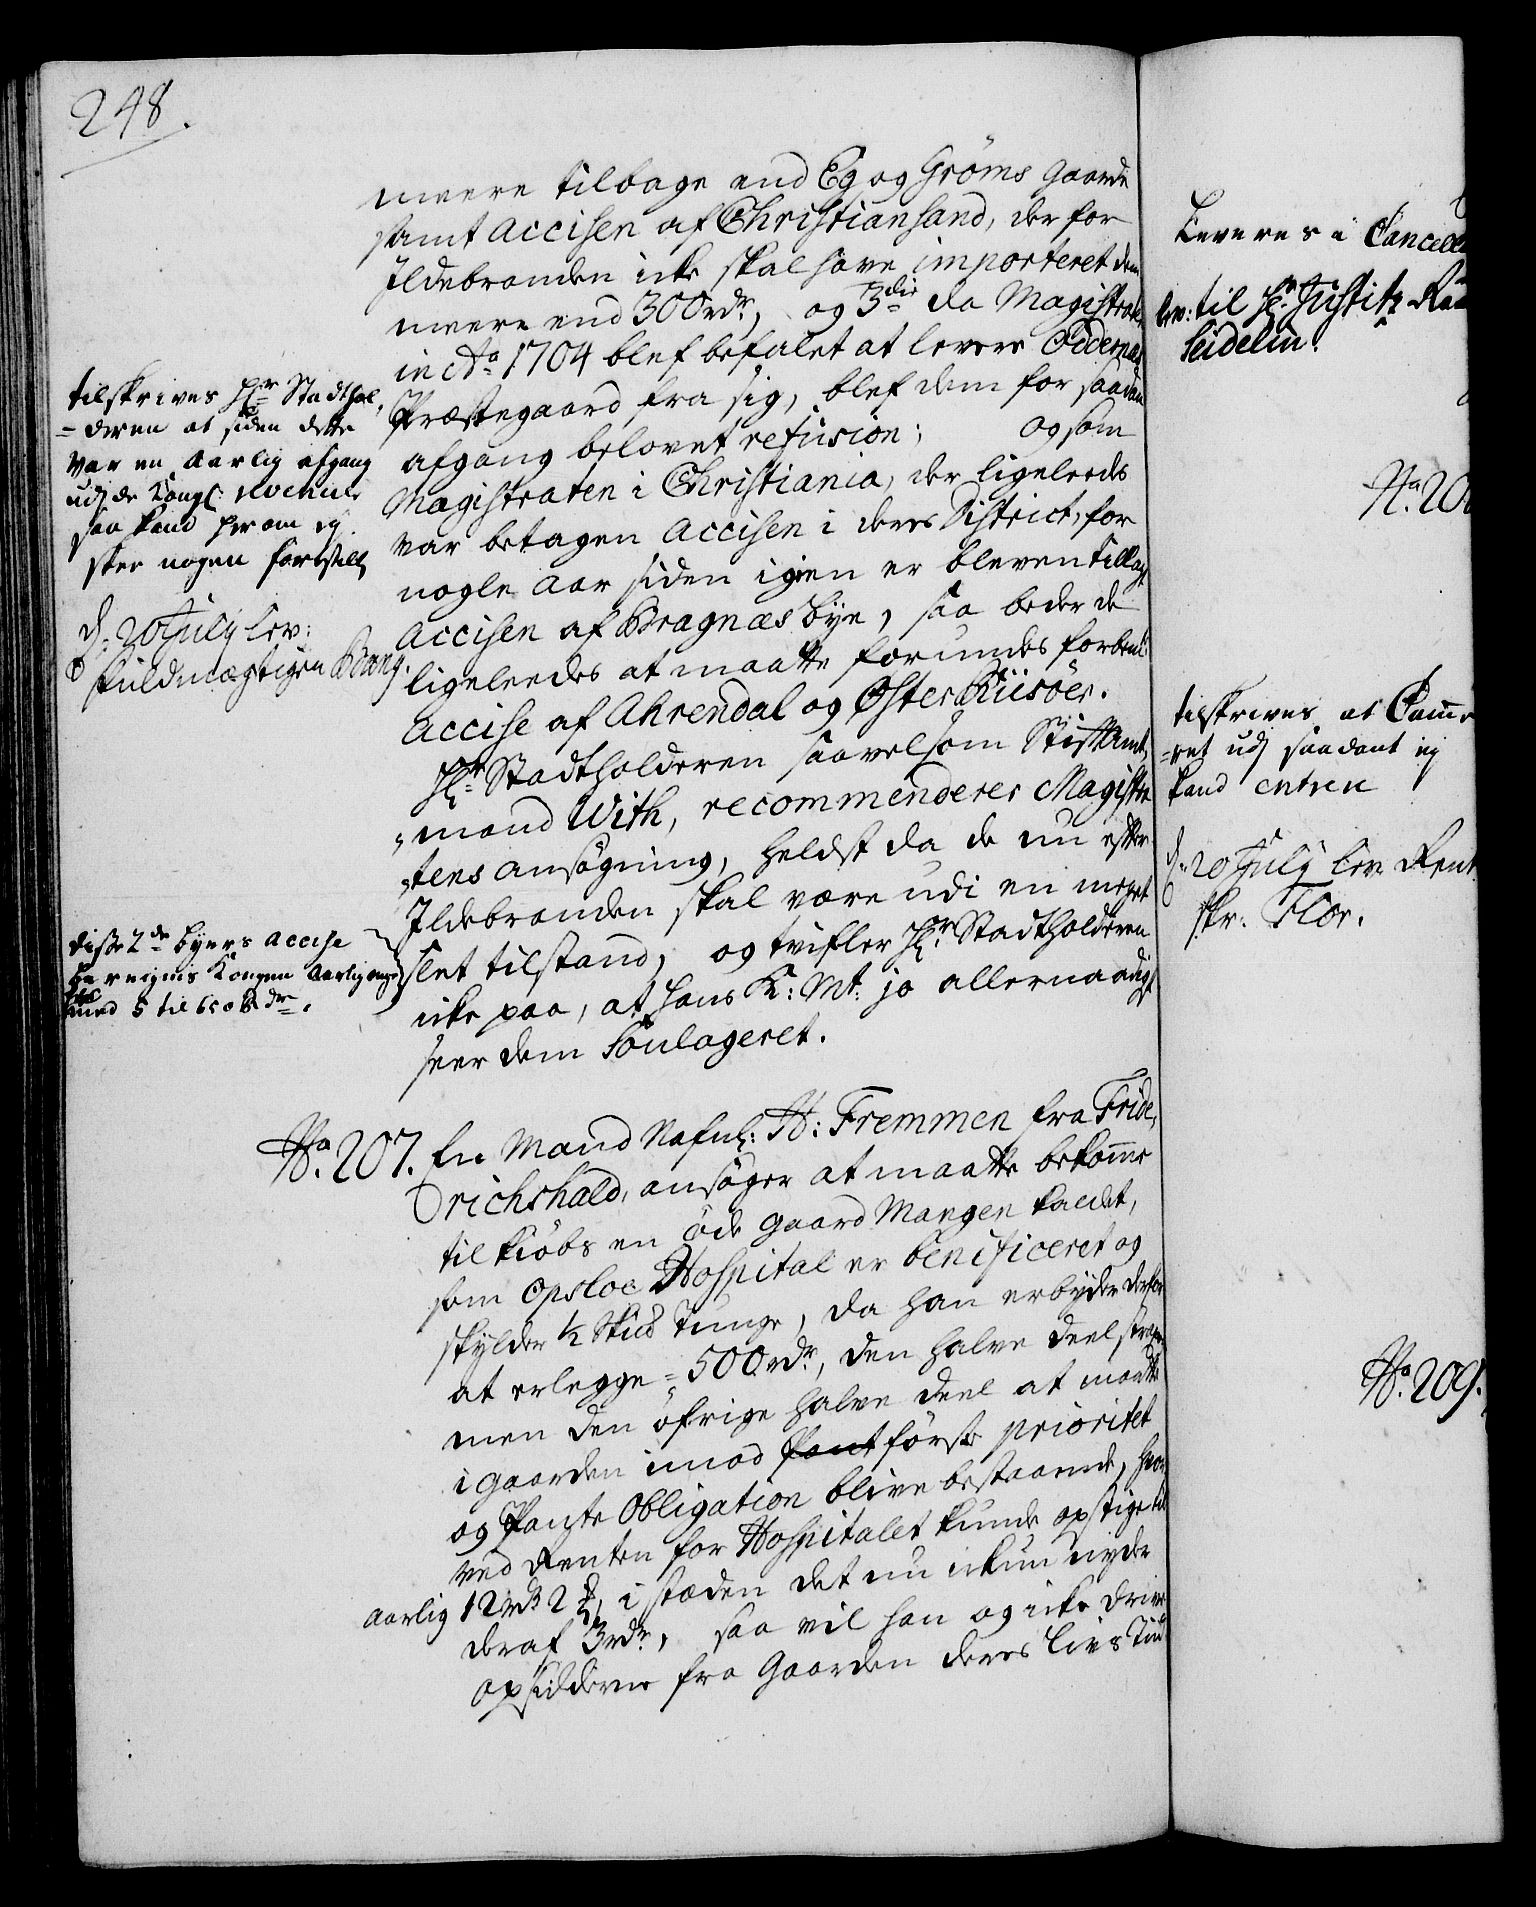 248.
meere tilbage end Eg og Grøms gaarde
samt Accisen af Christiansand, der for
Ildebranden icke skal have importeret dem
meere end 300 rdr, og 3die da Magistraten
in Ao 1704 blef befalet at levere Oddernæs
Præstegaard fra sig, blef dem for saadan
afgang belovet refusion; og som
Magistraten i Christiania, der ligeleedes
var betagen Accisen i deres District, for
nogle Aar siden igien er bleven tillagt
Accisen af Bragnæs bye, saa beder de
ligeleedes at maatte forundes forbemt:
Accise af Ahrendal og Øster Riisöer.
Hr Stadtholderen saavelsom Stiftamt,
mand With, recommenderer Magistra
tens ansögning, heldst da de nu efter
Ildebranden skal være udi en meget
slet tilstand, og tvifler Hr Stadtholderen
icke paa, at hans K: Mt: jo allernaadigst
seer dem Soulageret.
tilskrives Hr Stadthol,
deren at siden dette
var en Aarlig afgang
udj de Kongl:
saa kand herom ej
skee nogen forestill
d: 20 July lev:
fuldmægtigen Bang.
disse 2de byers accise
her eigner Kongen aarlig
med 5 til 600 rdr.
No. 207. En Mand Nafnl: H: Fremmen fra Fride,
richshald, ansöger at maatte bekomme
til kiöbs en öde gaard Mangen kaldet,
som Opsloe Hospital er benificeret og
skylder 1/2 Skind Tunge, da han erbyder derfor
at erlegge 500 rdr, den halve deel strax
men den öfrige halve deel at maatte
i gaarden imod Pant förste prioritet
og Pante Obligation blive bestaaende, hvor
ved Renten for Hospitalet kunde opstige til
aarlig 12 rdr 2 , i stæden det nu ickun nyder
deraf 3 rdr, saa vil han og icke drive
opsidderne fra Gaarden deres Livs Tiid
Leveres i Cancell
lev: til Hr Justitz Raad
Seidelin.
No. 20
tilskrives at Cam̄e
ret udj saadant ej
kand entree
d: 20 July lev Rent
skr: Flor.
No. 209.